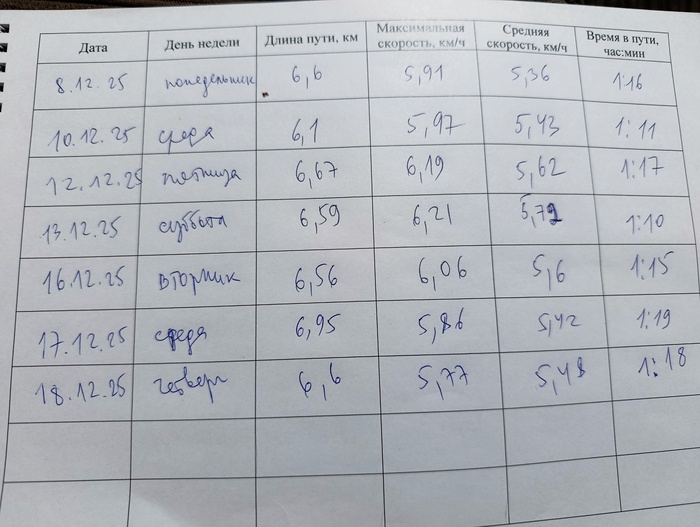 Дата День недели Длина пути, км Максимальная скорость, км/ч Средняя скорость, км/ч Время в пути, час:мин
8.12.25 понедельник 6,6 5,91 5,36 1:16
10.12.25 среда 6,1 5,97 5,43 1:11
12.12.25 пятница 6,67 6,19 5,62 1:17
13.12.25 суббота 6,59 6,21 5,72 1:10
16.12.25 вторник 6,56 6,06 5,6 1:15
17.12.25 среда 6,95 5,86 5,42 1:19
18.12.25 четверг 6,6 5,77 5,48 1:18